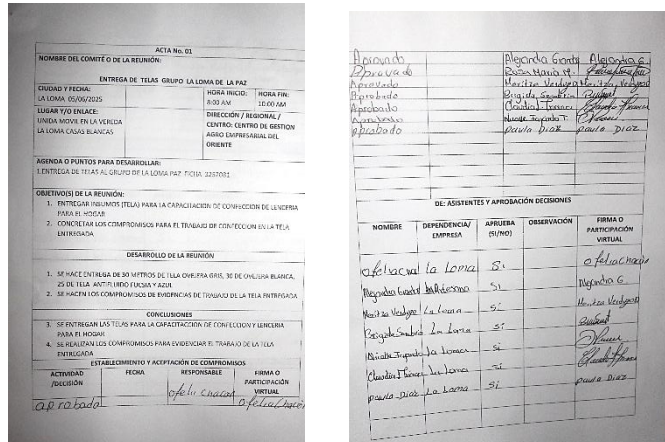 ACTA No. 01
NOMBRE DEL COMITÉ O DE LA REUNIÓN:
ENTREGA DE TELAS GRUPO LA LOMA DE LA PAZ
CIUDAD Y FECHA:
LA LOMA 05/06/2025
HORA INICIO:
8:00 AM
HORA FIN:
10:00 AM
LUGAR Y/O ENLACE:
UNIDA MOVIL EN LA VEREDA
LA LOMA CASAS BLANCAS
DIRECCIÓN / REGIONAL /
CENTRO: CENTRO DE GESTION
AGRO EMPRESARIAL DEL
ORIENTE
AGENDA O PUNTOS PARA DESARROLLAR:
1.ENTREGA DE TELAS AL GRUPO DE LA LOMA PAZ FICHA
OBJETIVO(S) DE LA REUNIÓN:
1. ENTREGAR INSUMOS (TELA) PARA LA CAPACITACIÓN DE CONFECCIÓN DE LENCERIA
PARA EL HOGAR
2. CONCRETAR LOS COMPROMISOS PARA EL TRABAJO DE CONFECCIÓN EN LA TELA
ENTREGADA
DESARROLLO DE LA REUNIÓN
1. SE HACE ENTREGA DE 30 METROS DE TELA OVEJERA GRIS, 30 DE OVEJERA BLANCA,
25 DE TELA ANTIFLUIDO FUCSIA Y AZUL
2. SE HACEN LOS COMPROMISOS DE EVIDENCIAS DE TRABAJO DE LA TELA ENTREGADA
CONCLUSIONES
3. SE ENTREGAN LAS TELAS PARA LA CAPACITACCION DE CONFECCION Y LENCERIA
PARA EL HOGAR
4. SE REALIZAN LOS COMPROMISOS PARA EVIDENCIAR EL TRABAJO DE LA TELA
ENTREGADA
ESTABLECIMIENTO Y ACEPTACIÓN DE COMPROMISOS
ACTIVIDAD
/DECISIÓN
FECHA
RESPONSABLE
FIRMA O
PARTICIPACIÓN
VIRTUAL
aprobada
ofelia chacon
ofelia chacón
Aprovado
Alejandra
Alejandra G.
Aprovado
Rosa María
Aprovado
Maritza Verdugo
Maritza Verdugo
Aprobado
Brigida
Aprobado
Claudia
Aprobado
aprobado
paula Diaz
paula Diaz
DE: ASISTENTES Y APROBACIÓN DECISIONES
NOMBRE
DEPENDENCIA/
EMPRESA
APRUEBA
(SI/NO)
OBSERVACIÓN
FIRMA O
PARTICIPACIÓN
VIRTUAL
La Loma
Si
ofelia chacón
Alejandra
si
Alejandra G.
Maritza Verdugo
La Loma
si
Maritza Verdugo
Brigida
La Loma
si
La Loma
si
Claudia
La Loma
si
paula Diaz
La Loma
si
paula Diaz